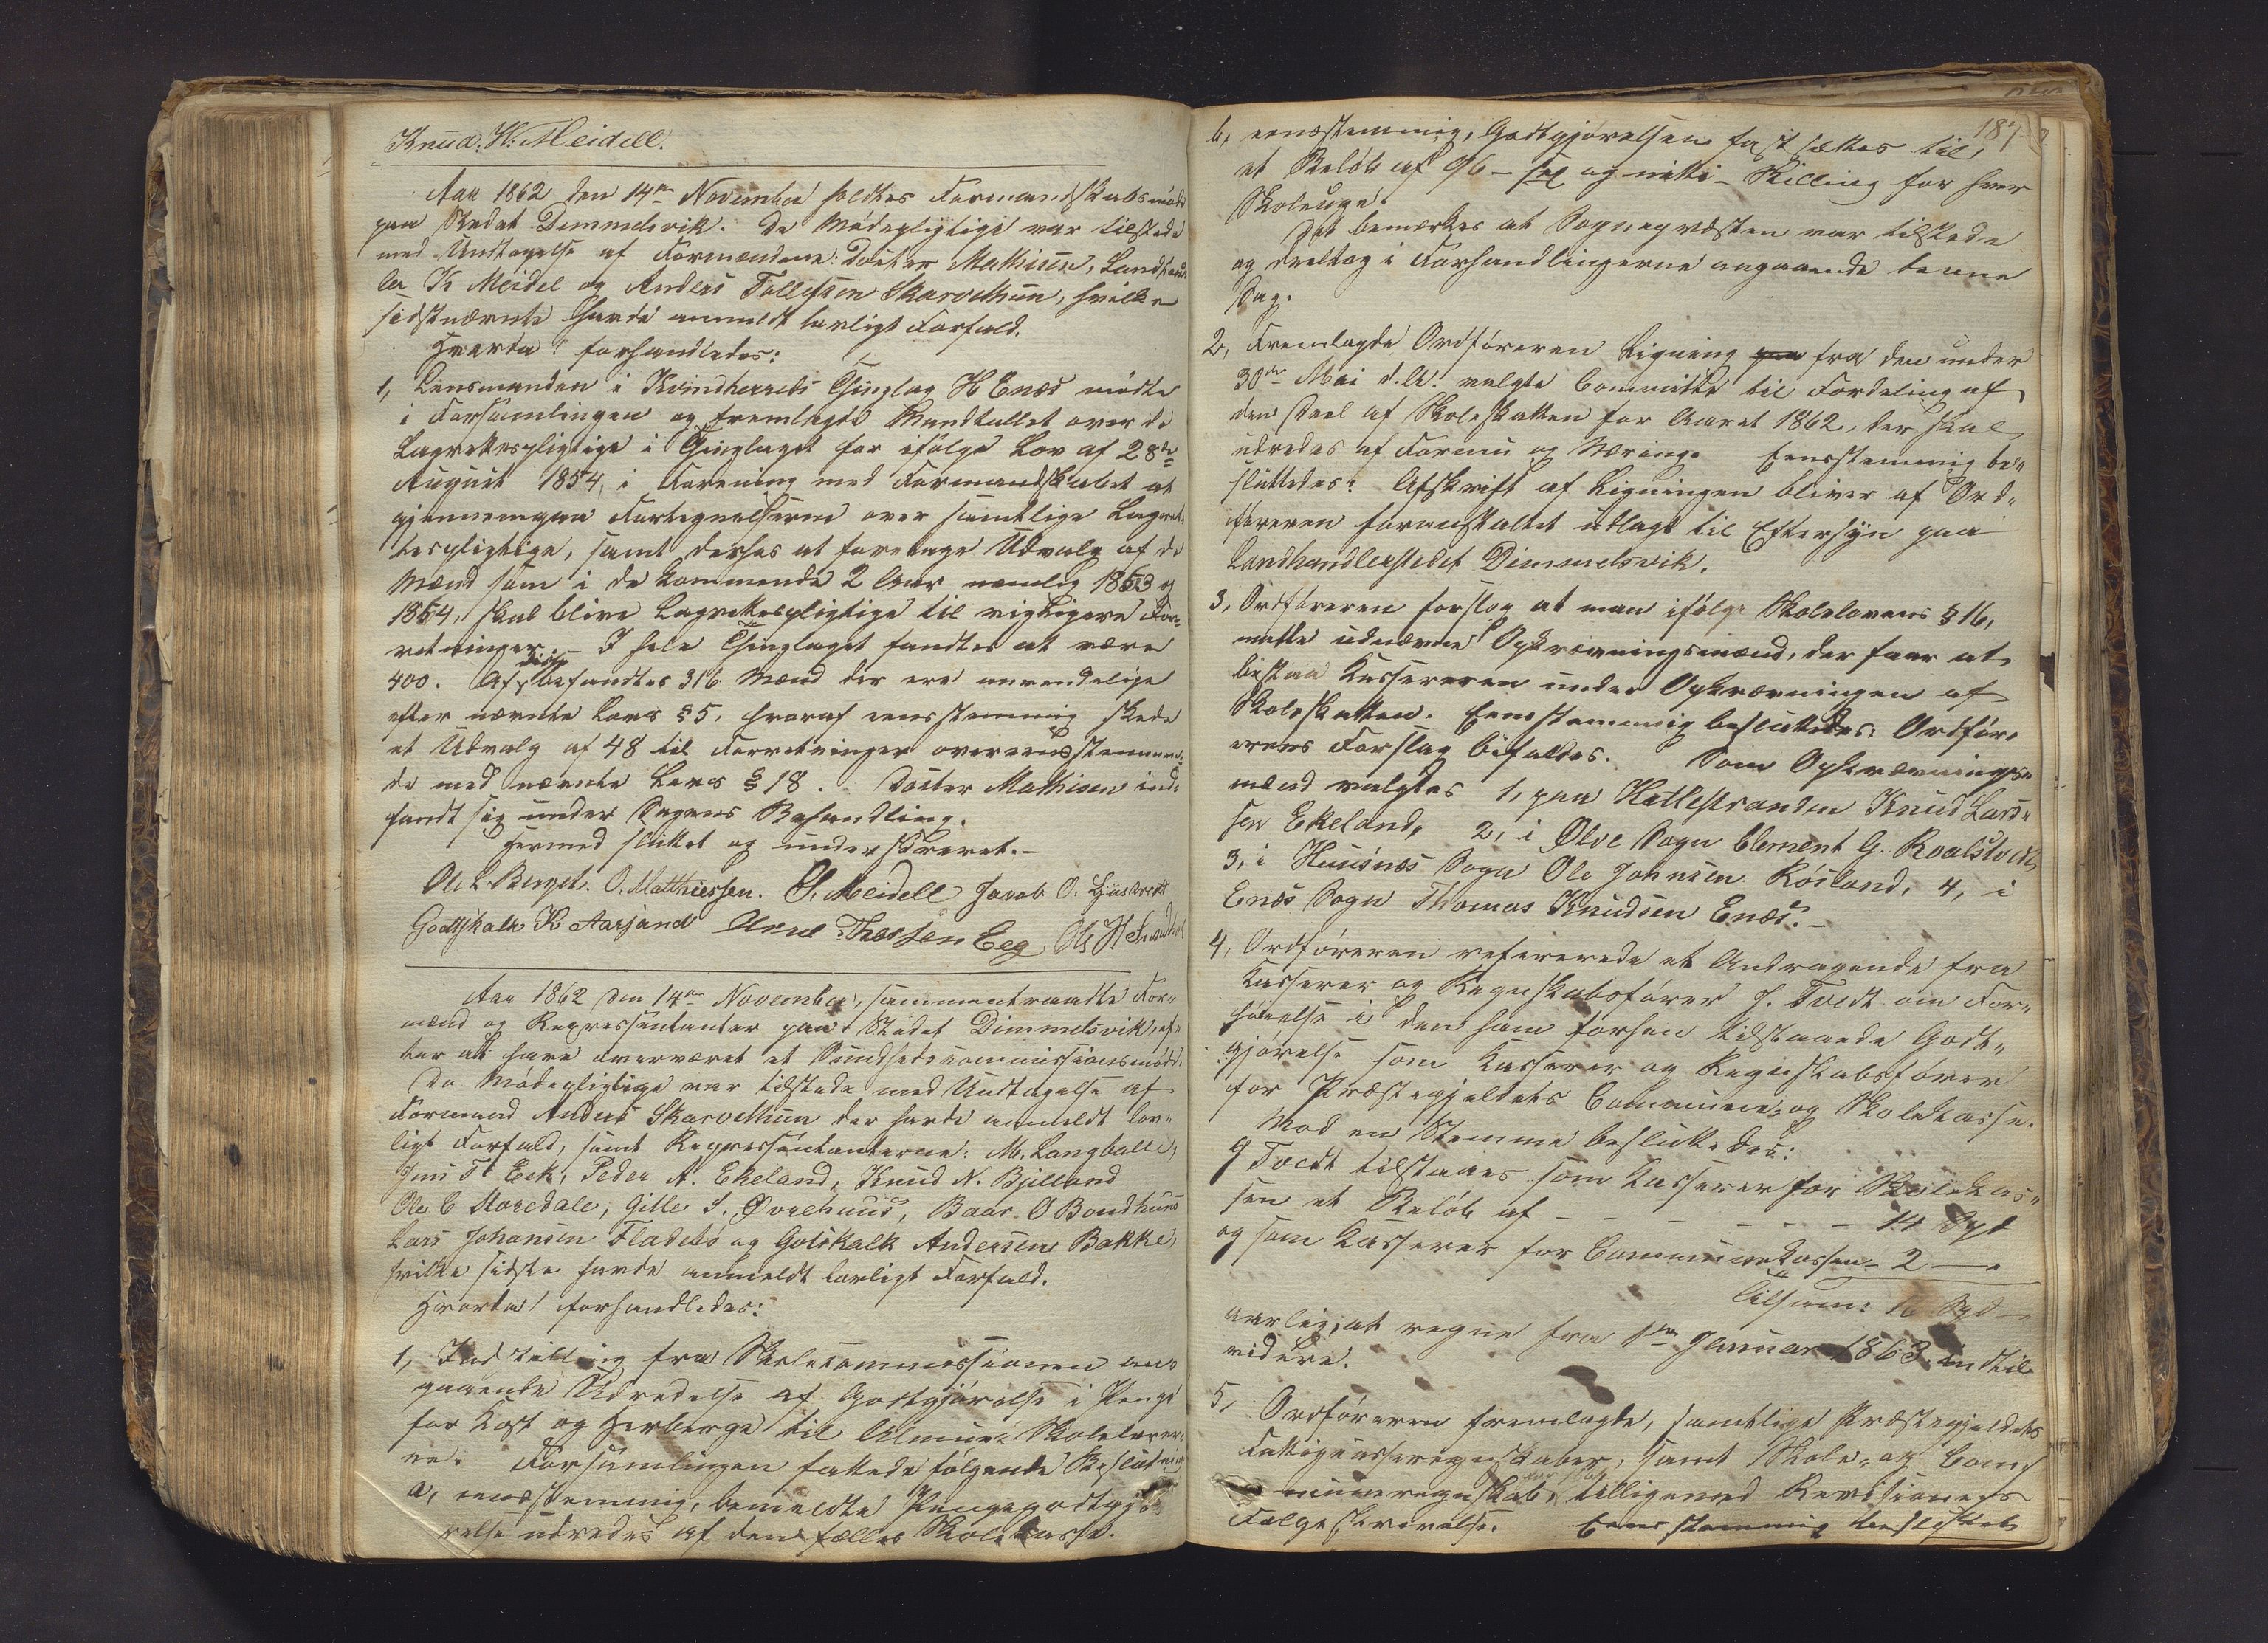 Knud. H: Meidell.
Aar 1862 den 14de November holdtes Formandskabsmöde
paa Stedet Dimmelsvik. De Mödepligtige var tilstede
med Undtagelse af Formændene: Doctor Mathisen, Landhand-
ler K Meidel og Anders Tollefsen Skarvethun, hvilken
sidstnævnte havde anmeldt lovligt Forfald.
Hvorda forhandledes:
1, Lensmanden i Kvindherreds Thinglag H Enæs mödte
i Forsamlingen og fremlagde Mandtallet over de
Lagrettespligtige i Thinglaget for ifölge Lov af 28de
August 1854, i Forening med Formandskabet at
gjennemgaa Fortegnelserne over samtlige Lagret-
tespligtige, samt derhos at foretage Udvalg af de
Mænd som i de kommende 2 Aar nemlig 1863 og
1864, skal blive Lagrettespligtige til vigtigere For-
retninger. - I hele Thinglaget fandtes at være
400. Af disse befandtes 316 Mænd der ere anvendelige
efter nævnte Lovs § 5, hvoraf eensstemmig skede
et Udvalg af 48 til Forretninger overeensstemmen-
de med nævnte Lovs § 18. Docter Mathisen ind-
fandt sig under Sagens Behandling.
Hermed sluttet og underskrevet. -
Ole L Berget. O. Matthiessen. Meidell Jacob O.
Godtskalk K Aarsand Arne Thossen Eeg Ole H
Aar 1862 den 14de November, sammentraadte For-
mænd og Repressentanter paa Stedet Dimmelsvik, ef-
ter at have overværet et Sundhedscommissionsmöde.
De Mödepligtige var tilstede med Undtagelse af
Formand Anders Skarvethun der havde anmeldt lov-
ligt Forfald, samt Repressentanterne: M. Langballe,
Jens T Eek, Peder A. Ekeland, Knud N. Bjelland
Ole C Storedale, Gille S. Øvrehuus, Baar O Bondhuus
Lars Johansen Fladebö og Gotskalk Andersen Bakke,
hvilke sidste havde anmeldt lovligt Forfald.
Hvorda forhandledes:
1, Indstilling fra Skolecommissionen an-
gaaende Udredelse af Godtgjörelse i Penge
for Kost og Herberge til Almue-Skolelærer-
ne. Forsamlingen fattede fölgende Beslutning
a, eensstemmig, bemeldte Pengegodtgjö-
relse udredes af den fælles Skolekasse.
187
b, eensstemmig, Godtgjörelsen fastsættes til
et Belöb af 96 - sex og nitti - Skilling for hver
Skoleuge.
Det bemærkes at Sognepræsten var tilstede
og deeltog i Forhandlingerne angaaende denne
Sag.
2, Fremlagde Ordföreren Ligning fra den under
30de Mai d.A. valgte Committe til Fordeling af
den Deel af Skoleskatten for Aaret 1862, der skal
udredes af Formue og Næring. Eensstemmig be-
sluttedes: Afskrift af Ligningen bliver af Ord-
föreren foranstaltet udlagt til Eftersyn paa
Landhandlerstedet Dimmelsvik.
3, Ordföreren forslog at man ifölge Skolelovens § 16,
matte udnævne Opkrævningsmænd, der faar at
bistaa Kassereren under Opkrævningen af
Skoleskatten. Eensstemmig besluttedes: Ordför-
erens Forslag bifaldes. Som Opkrævnings-
mænd valgtes 1, paa Hatlestranden Knud Lars-
sen Ekeland, 2, i Ølve Sogn Clement G. Roalstvedt
3, i Huusnæs Sogn Ole Johnsen Rösland, 4, i
Enæs Sogn Thomas Knudsen Enæs. -
4, Ordföreren refererede et Andragende fra
Kasserer og Regnskabsförer J. Tvedt om For-
höielse i den ham forhen tilstaaede Godt-
gjörelse som Kasserer og Regnskabsförer
for Præstegjeldets Commune- og Skolekasse.
Mod en Stemme besluttedes:
J Tvedt tilstaaes som Kasserer for Skolekas-
sen et Belöb af - - - - - - 14 Spd
og som Kasserer for Communekassen - 2 - .
Tilsam: 16 Spd
aarlig, at regne fra 1ste Januar 1863 indtil
videre.
5, Ordföreren fremlagde, samtlige Præstegjeldets
Fattigkasseregnskaber, samt Skole- og Com-
muneregnskab, tilligemed Revisionens
Følgeskrivelse. Eensstemmig besluttet